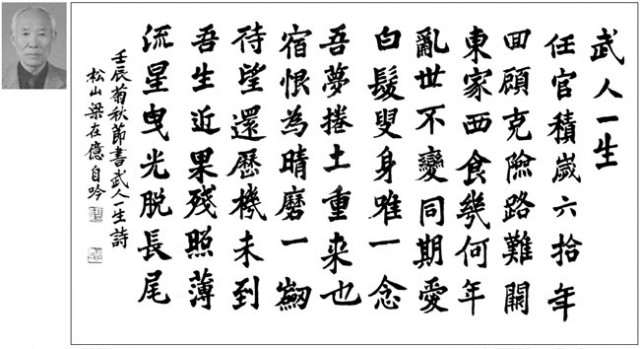 武人一生
任官積歲六拾年
回顧克險路難關
東家西食幾何年
亂世不變同期愛
白髮叟身唯一念
吾夢捲土重来也
宿恨為晴磨一劒
待望還歷機未到
吾生近果殘照薄
流星曳光脱長尾
壬辰菊秋節書武人一生詩
松山梁在億自吟